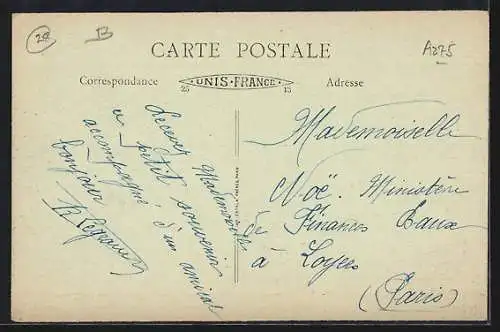 28 B A275
CARTE POSTALE
Correspondance UNIS-FRANCE Adresse
25 13
Recevez Mademoiselle
un petit souvenir
accompagné d'un amical
bonjour
Mademoiselle
Noë. Ministère
de Finances Eaux
à Loyer
(Paris)